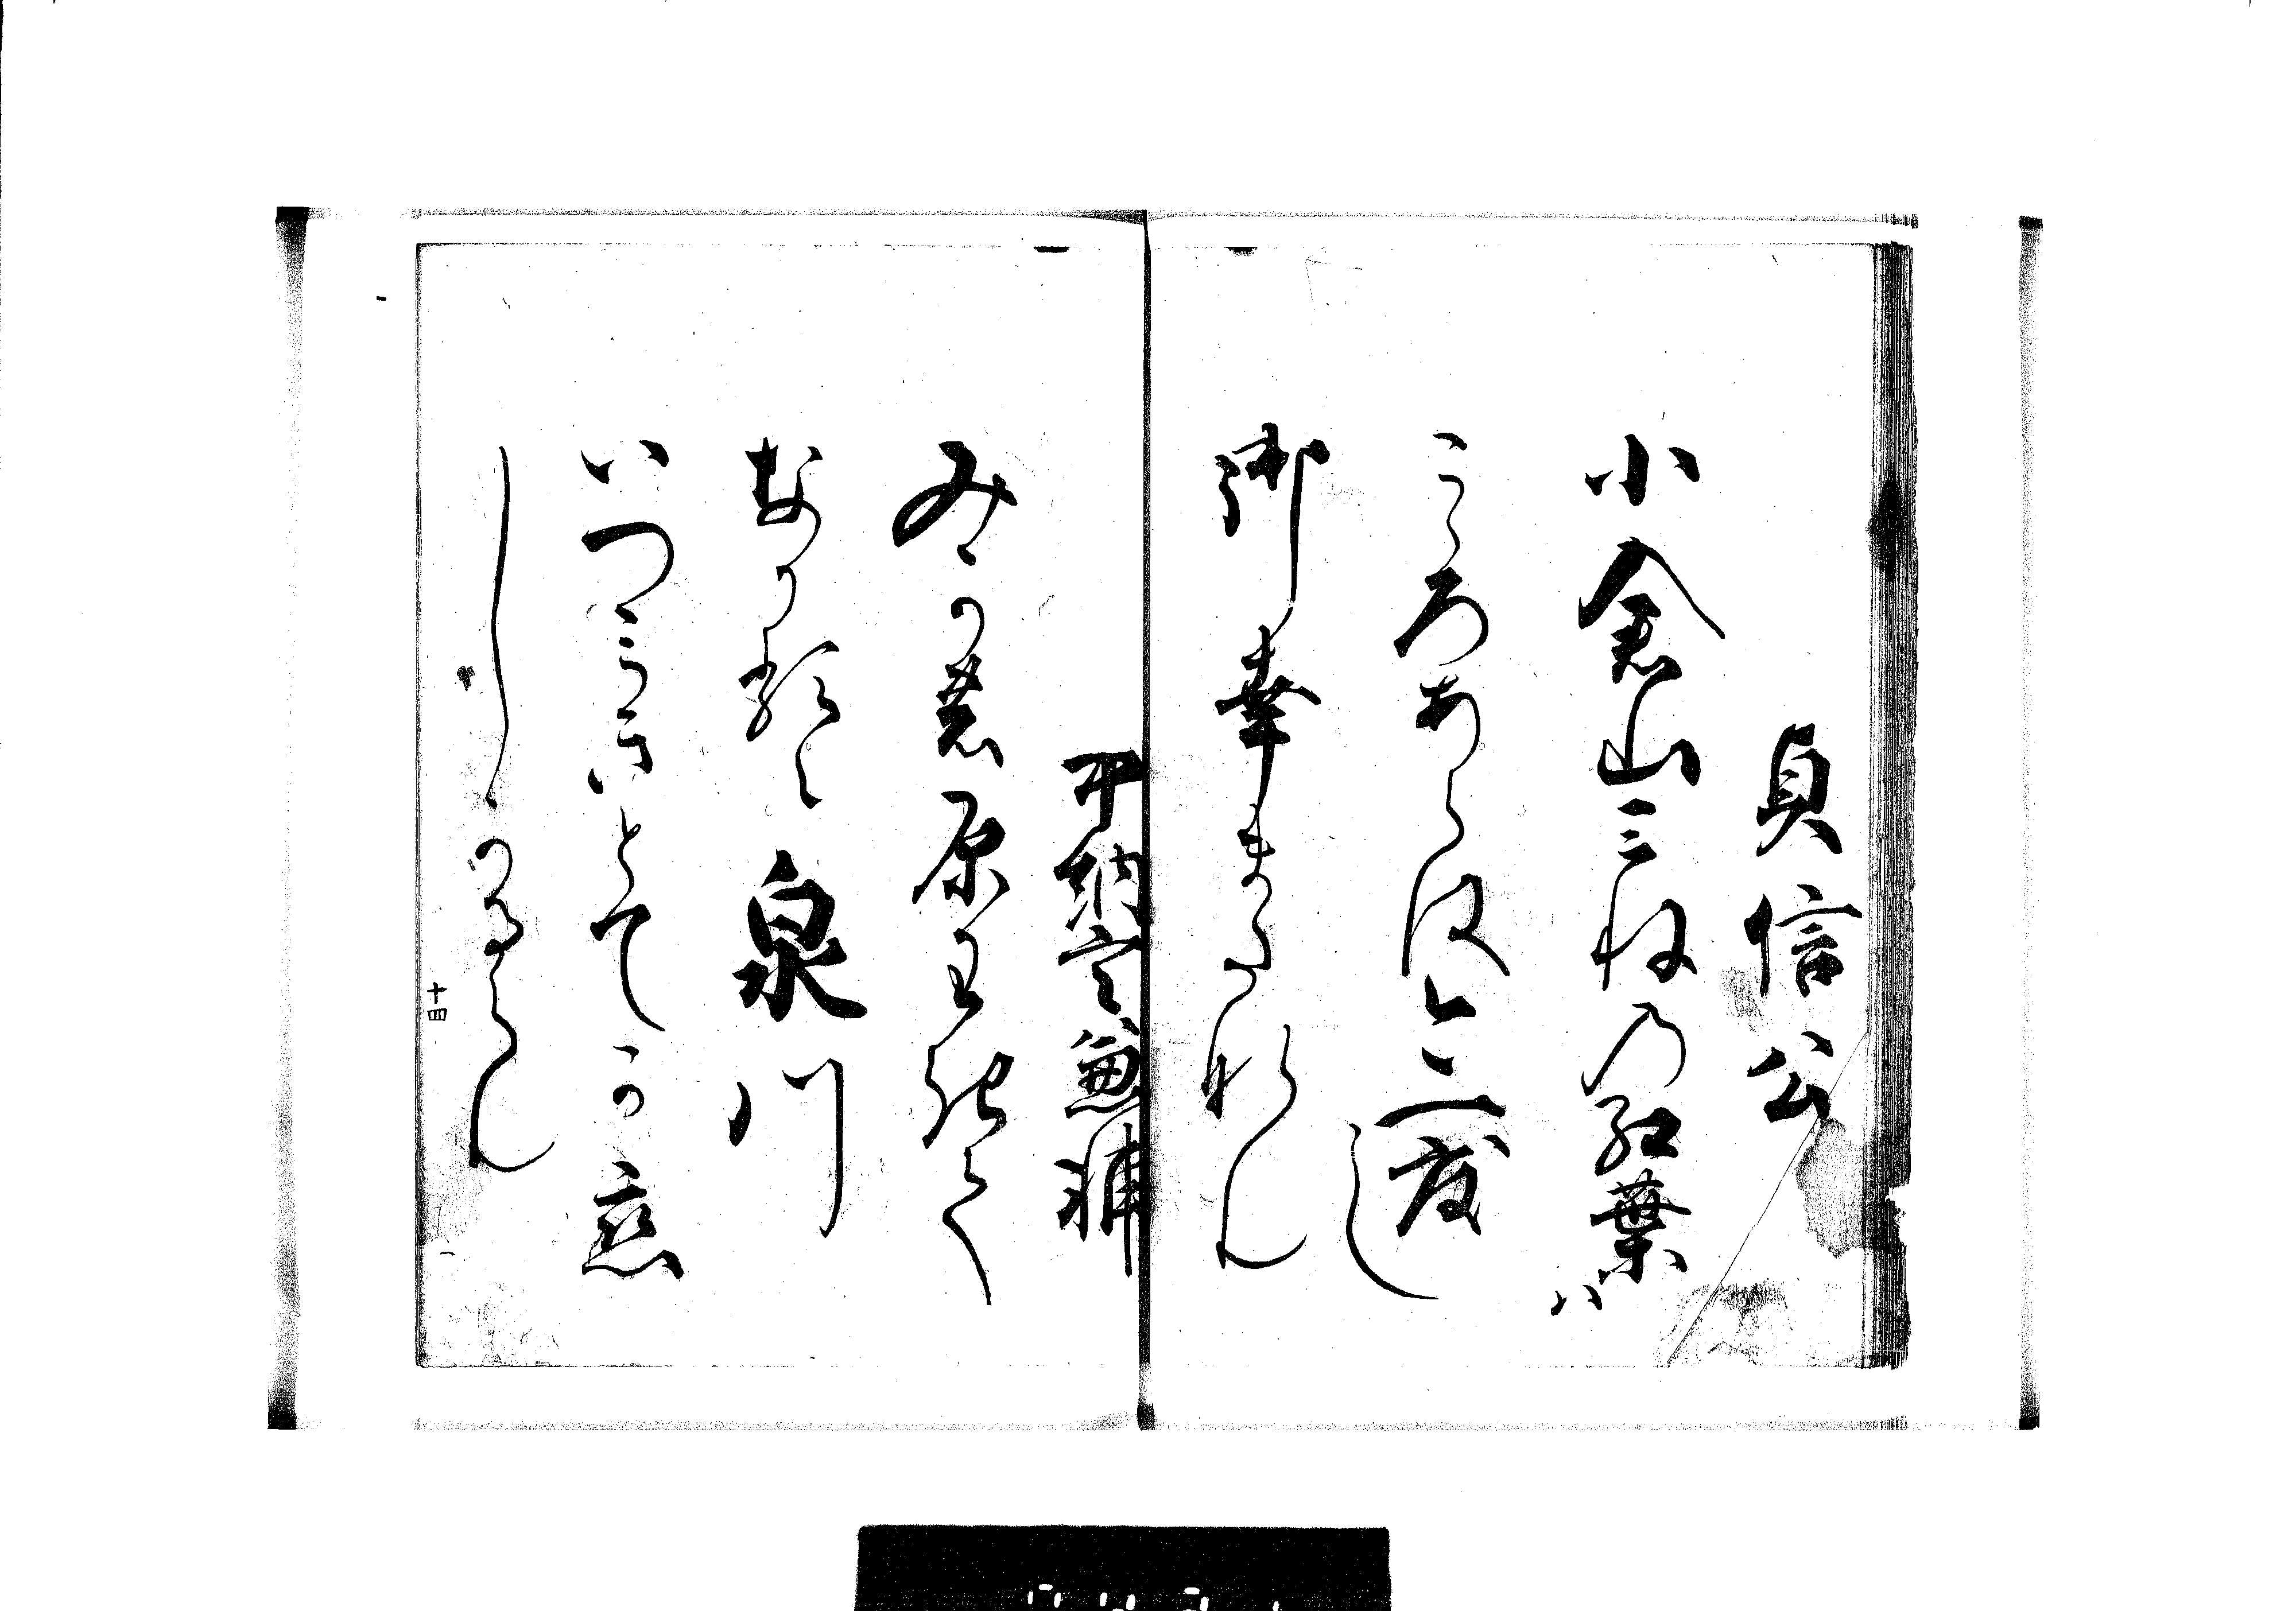 貞信公
小倉山みねの紅葉ハ
こゝろあらは今一度
御幸またなん
中納言兼輔
みかの原わきて
なかるゝ泉川
いつみきとてか恋
しかるらん
十四